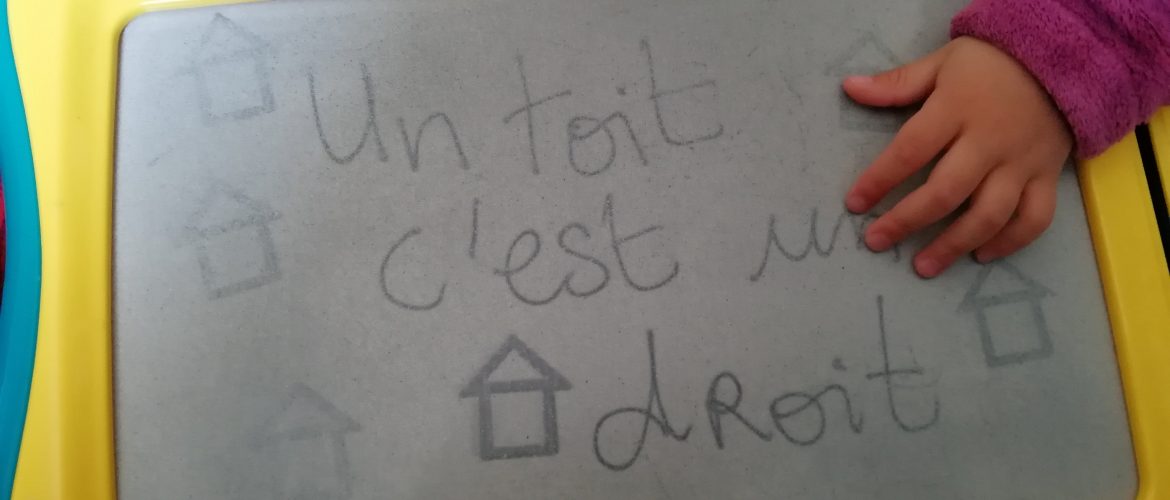 Un toit
c'est un
droit